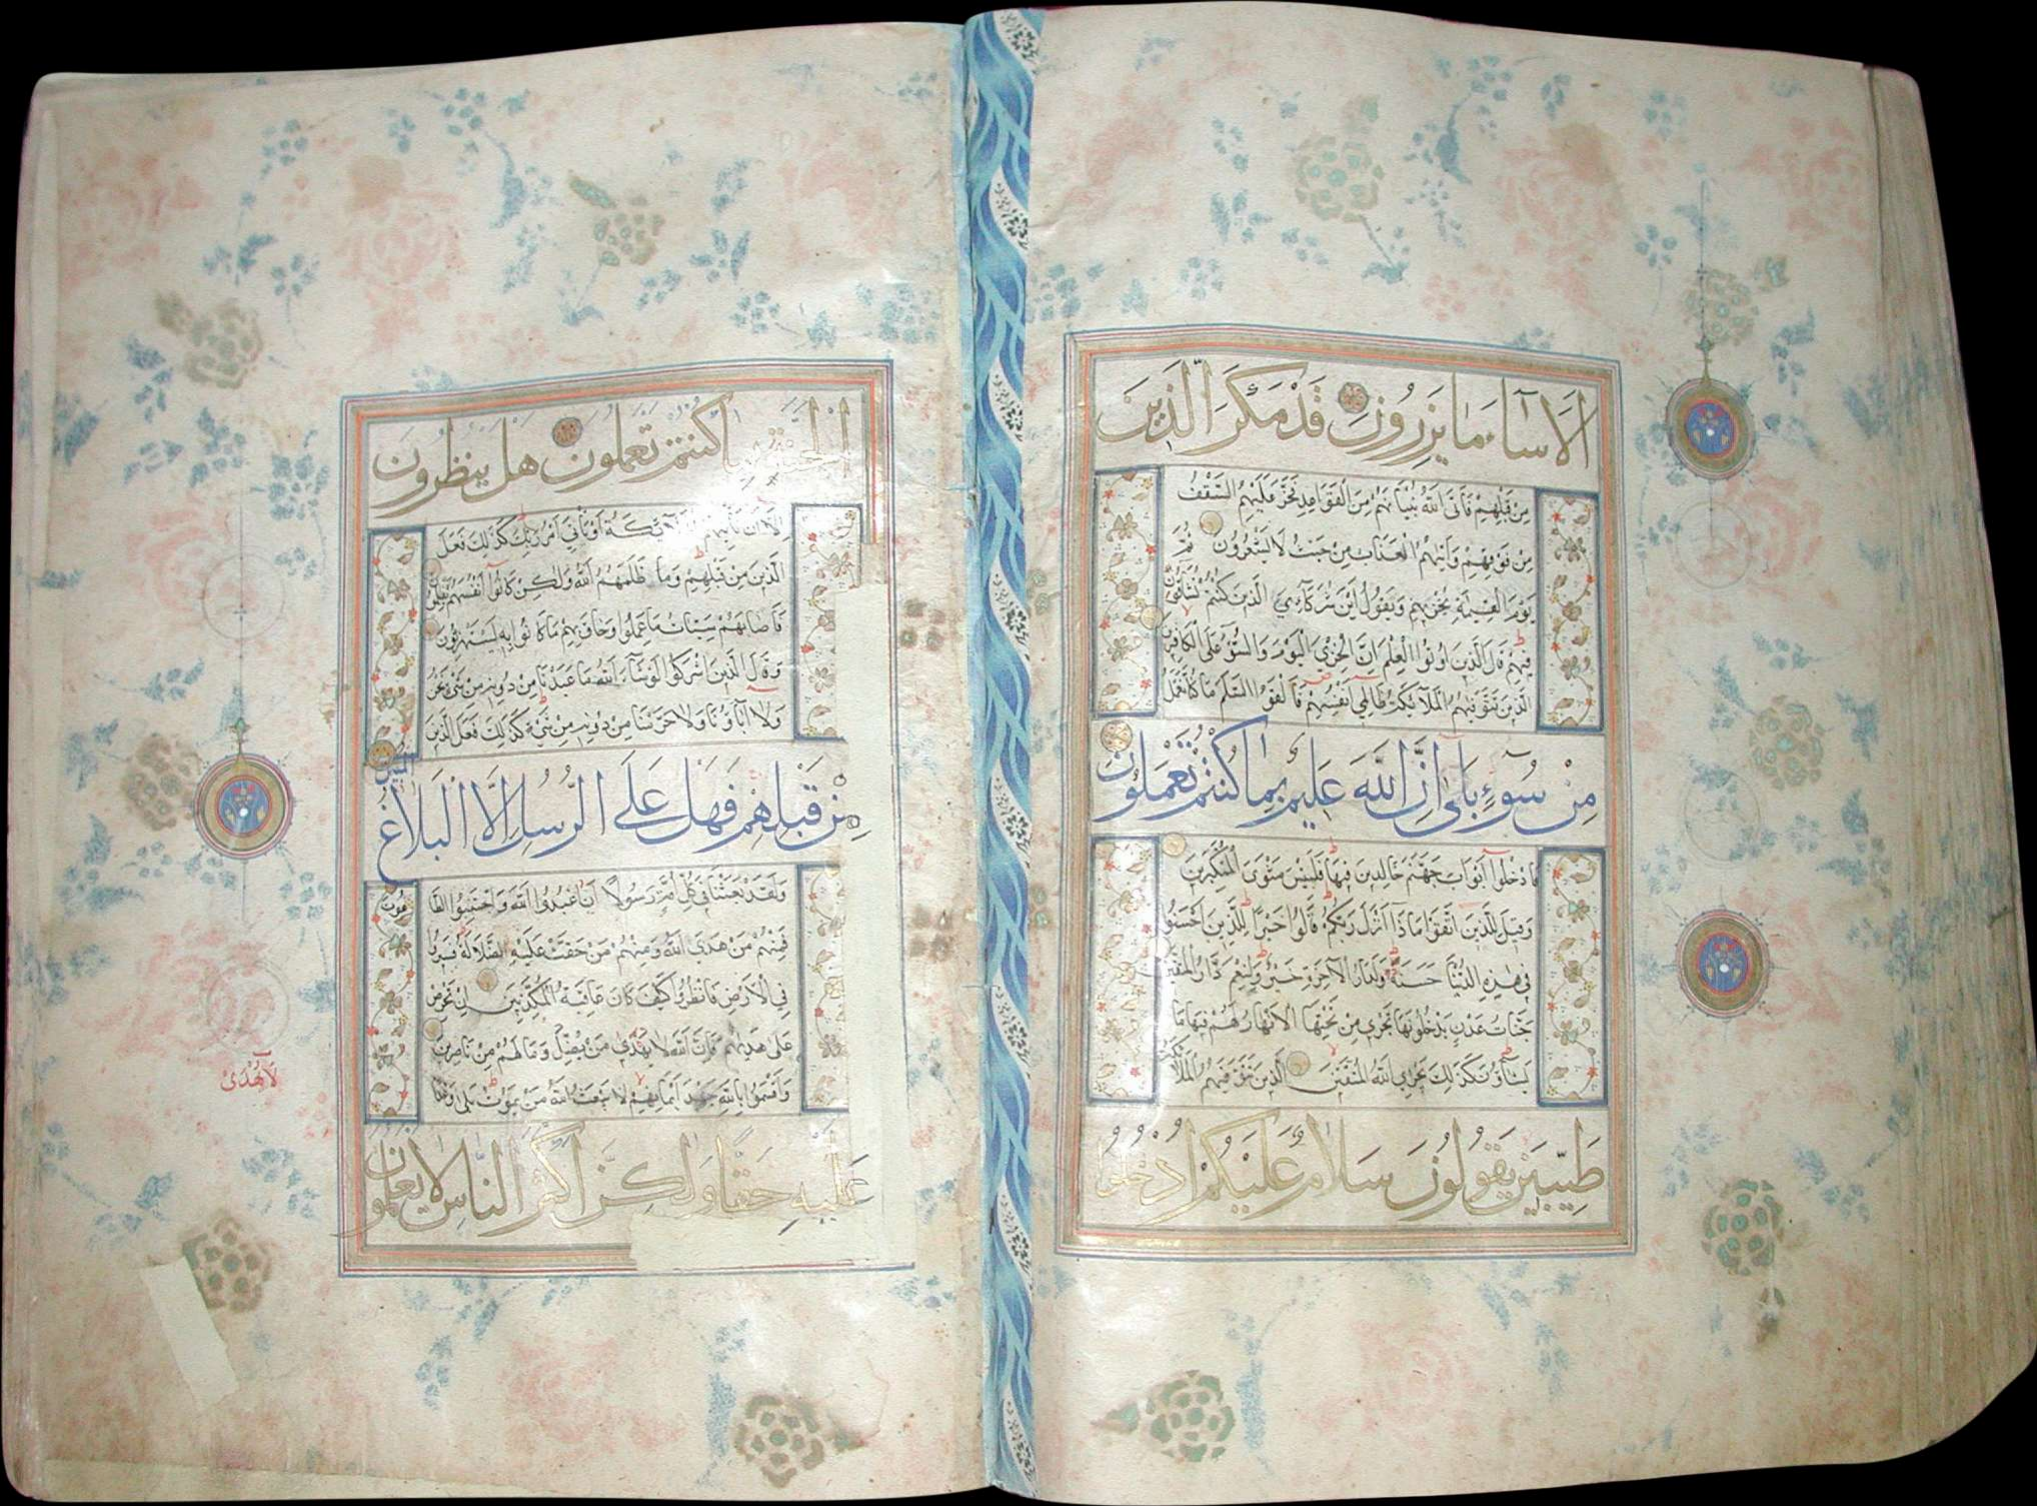 اَلَا سَاءَ مَا يَزِرُونَ قَدْ مَكَرَ الَّذِينَ
مِنْ قَبْلِهِمْ فَاَتَى اللّٰهُ بُنْيَانَهُمْ مِنَ الْقَوَاعِدِ فَخَرَّ عَلَيْهِمُ السَّقْفُ
مِنْ فَوْقِهِمْ وَاَتٰيهُمُ الْعَذَابُ مِنْ حَيْثُ لَا يَشْعُرُونَ ثُمَّ
يَوْمَ الْقِيٰمَةِ يُخْزِيهِمْ وَيَقُولُ اَيْنَ شُرَكَآءِيَ الَّذِينَ كُنْتُمْ تُشَاقُّونَ
فِيهِمْ قَالَ الَّذِينَ اُوتُوا الْعِلْمَ اِنَّ الْخِزْيَ الْيَوْمَ وَالسُّوٓءَ عَلَى الْكَافِرِينَ
الَّذِينَ تَتَوَفّٰيهُمُ الْمَلَآئِكَةُ ظَالِمِي اَنْفُسِهِمْ فَاَلْقَوُا السَّلَمَ مَا كُنَّا نَعْمَلُ
مِنْ سُوٓءٍ بَلٰى اِنَّ اللّٰهَ عَلِيمٌ بِمَا كُنْتُمْ تَعْمَلُونَ
فَادْخُلُوا اَبْوَابَ جَهَنَّمَ خَالِدِينَ فِيهَا فَلَبِئْسَ مَثْوَى الْمُتَكَبِّرِينَ
وَقِيلَ لِلَّذِينَ اتَّقَوْا مَاذَا اَنْزَلَ رَبُّكُمْ قَالُوا خَيْرًا لِلَّذِينَ اَحْسَنُوا
فِي هٰذِهِ الدُّنْيَا حَسَنَةٌ وَلَدَارُ الْاٰخِرَةِ خَيْرٌ وَلَنِعْمَ دَارُ الْمُتَّقِينَ
جَنَّاتُ عَدْنٍ يَدْخُلُونَهَا تَجْرِي مِنْ تَحْتِهَا الْاَنْهَارُ لَهُمْ فِيهَا مَا
يَشَآؤُنَ كَذٰلِكَ يَجْزِي اللّٰهُ الْمُتَّقِينَ الَّذِينَ تَتَوَفّٰيهُمُ الْمَلَآئِكَةُ
طَيِّبِينَ يَقُولُونَ سَلَامٌ عَلَيْكُمُ ادْخُلُوا
الْجَنَّةَ بِمَا كُنْتُمْ تَعْمَلُونَ هَلْ يَنْظُرُونَ
اِلَّا اَنْ تَأْتِيَهُمُ الْمَلَآئِكَةُ اَوْ يَأْتِيَ اَمْرُ رَبِّكَ كَذٰلِكَ فَعَلَ
الَّذِينَ مِنْ قَبْلِهِمْ وَمَا ظَلَمَهُمُ اللّٰهُ وَلٰكِنْ كَانُوا اَنْفُسَهُمْ يَظْلِمُونَ
فَاَصَابَهُمْ سَيِّئَاتُ مَا عَمِلُوا وَحَاقَ بِهِمْ مَا كَانُوا بِهِ يَسْتَهْزِؤُنَ
وَقَالَ الَّذِينَ اَشْرَكُوا لَوْ شَآءَ اللّٰهُ مَا عَبَدْنَا مِنْ دُونِهِ مِنْ شَيْءٍ نَحْنُ
وَلَا اٰبَاؤُنَا وَلَا حَرَّمْنَا مِنْ دُونِهِ مِنْ شَيْءٍ كَذٰلِكَ فَعَلَ الَّذِينَ
مِنْ قَبْلِهِمْ فَهَلْ عَلَى الرُّسُلِ اِلَّا الْبَلَاغُ الْمُبِينُ
وَلَقَدْ بَعَثْنَا فِي كُلِّ اُمَّةٍ رَسُولًا اَنِ اعْبُدُوا اللّٰهَ وَاجْتَنِبُوا الطَّاغُوتَ
فَمِنْهُمْ مَنْ هَدَى اللّٰهُ وَمِنْهُمْ مَنْ حَقَّتْ عَلَيْهِ الضَّلَالَةُ فَسِيرُوا
فِي الْاَرْضِ فَانْظُرُوا كَيْفَ كَانَ عَاقِبَةُ الْمُكَذِّبِينَ اِنْ تَحْرِصْ
عَلٰى هُدٰيهُمْ فَاِنَّ اللّٰهَ لَا يَهْدِي مَنْ يُضِلُّ وَمَا لَهُمْ مِنْ نَاصِرِينَ
وَاَقْسَمُوا بِاللّٰهِ جَهْدَ اَيْمَانِهِمْ لَا يَبْعَثُ اللّٰهُ مَنْ يَمُوتُ بَلٰى وَعْدًا
عَلَيْهِ حَقًّا وَلٰكِنَّ اَكْثَرَ النَّاسِ لَا يَعْلَمُونَ
لَا يُهْدَى